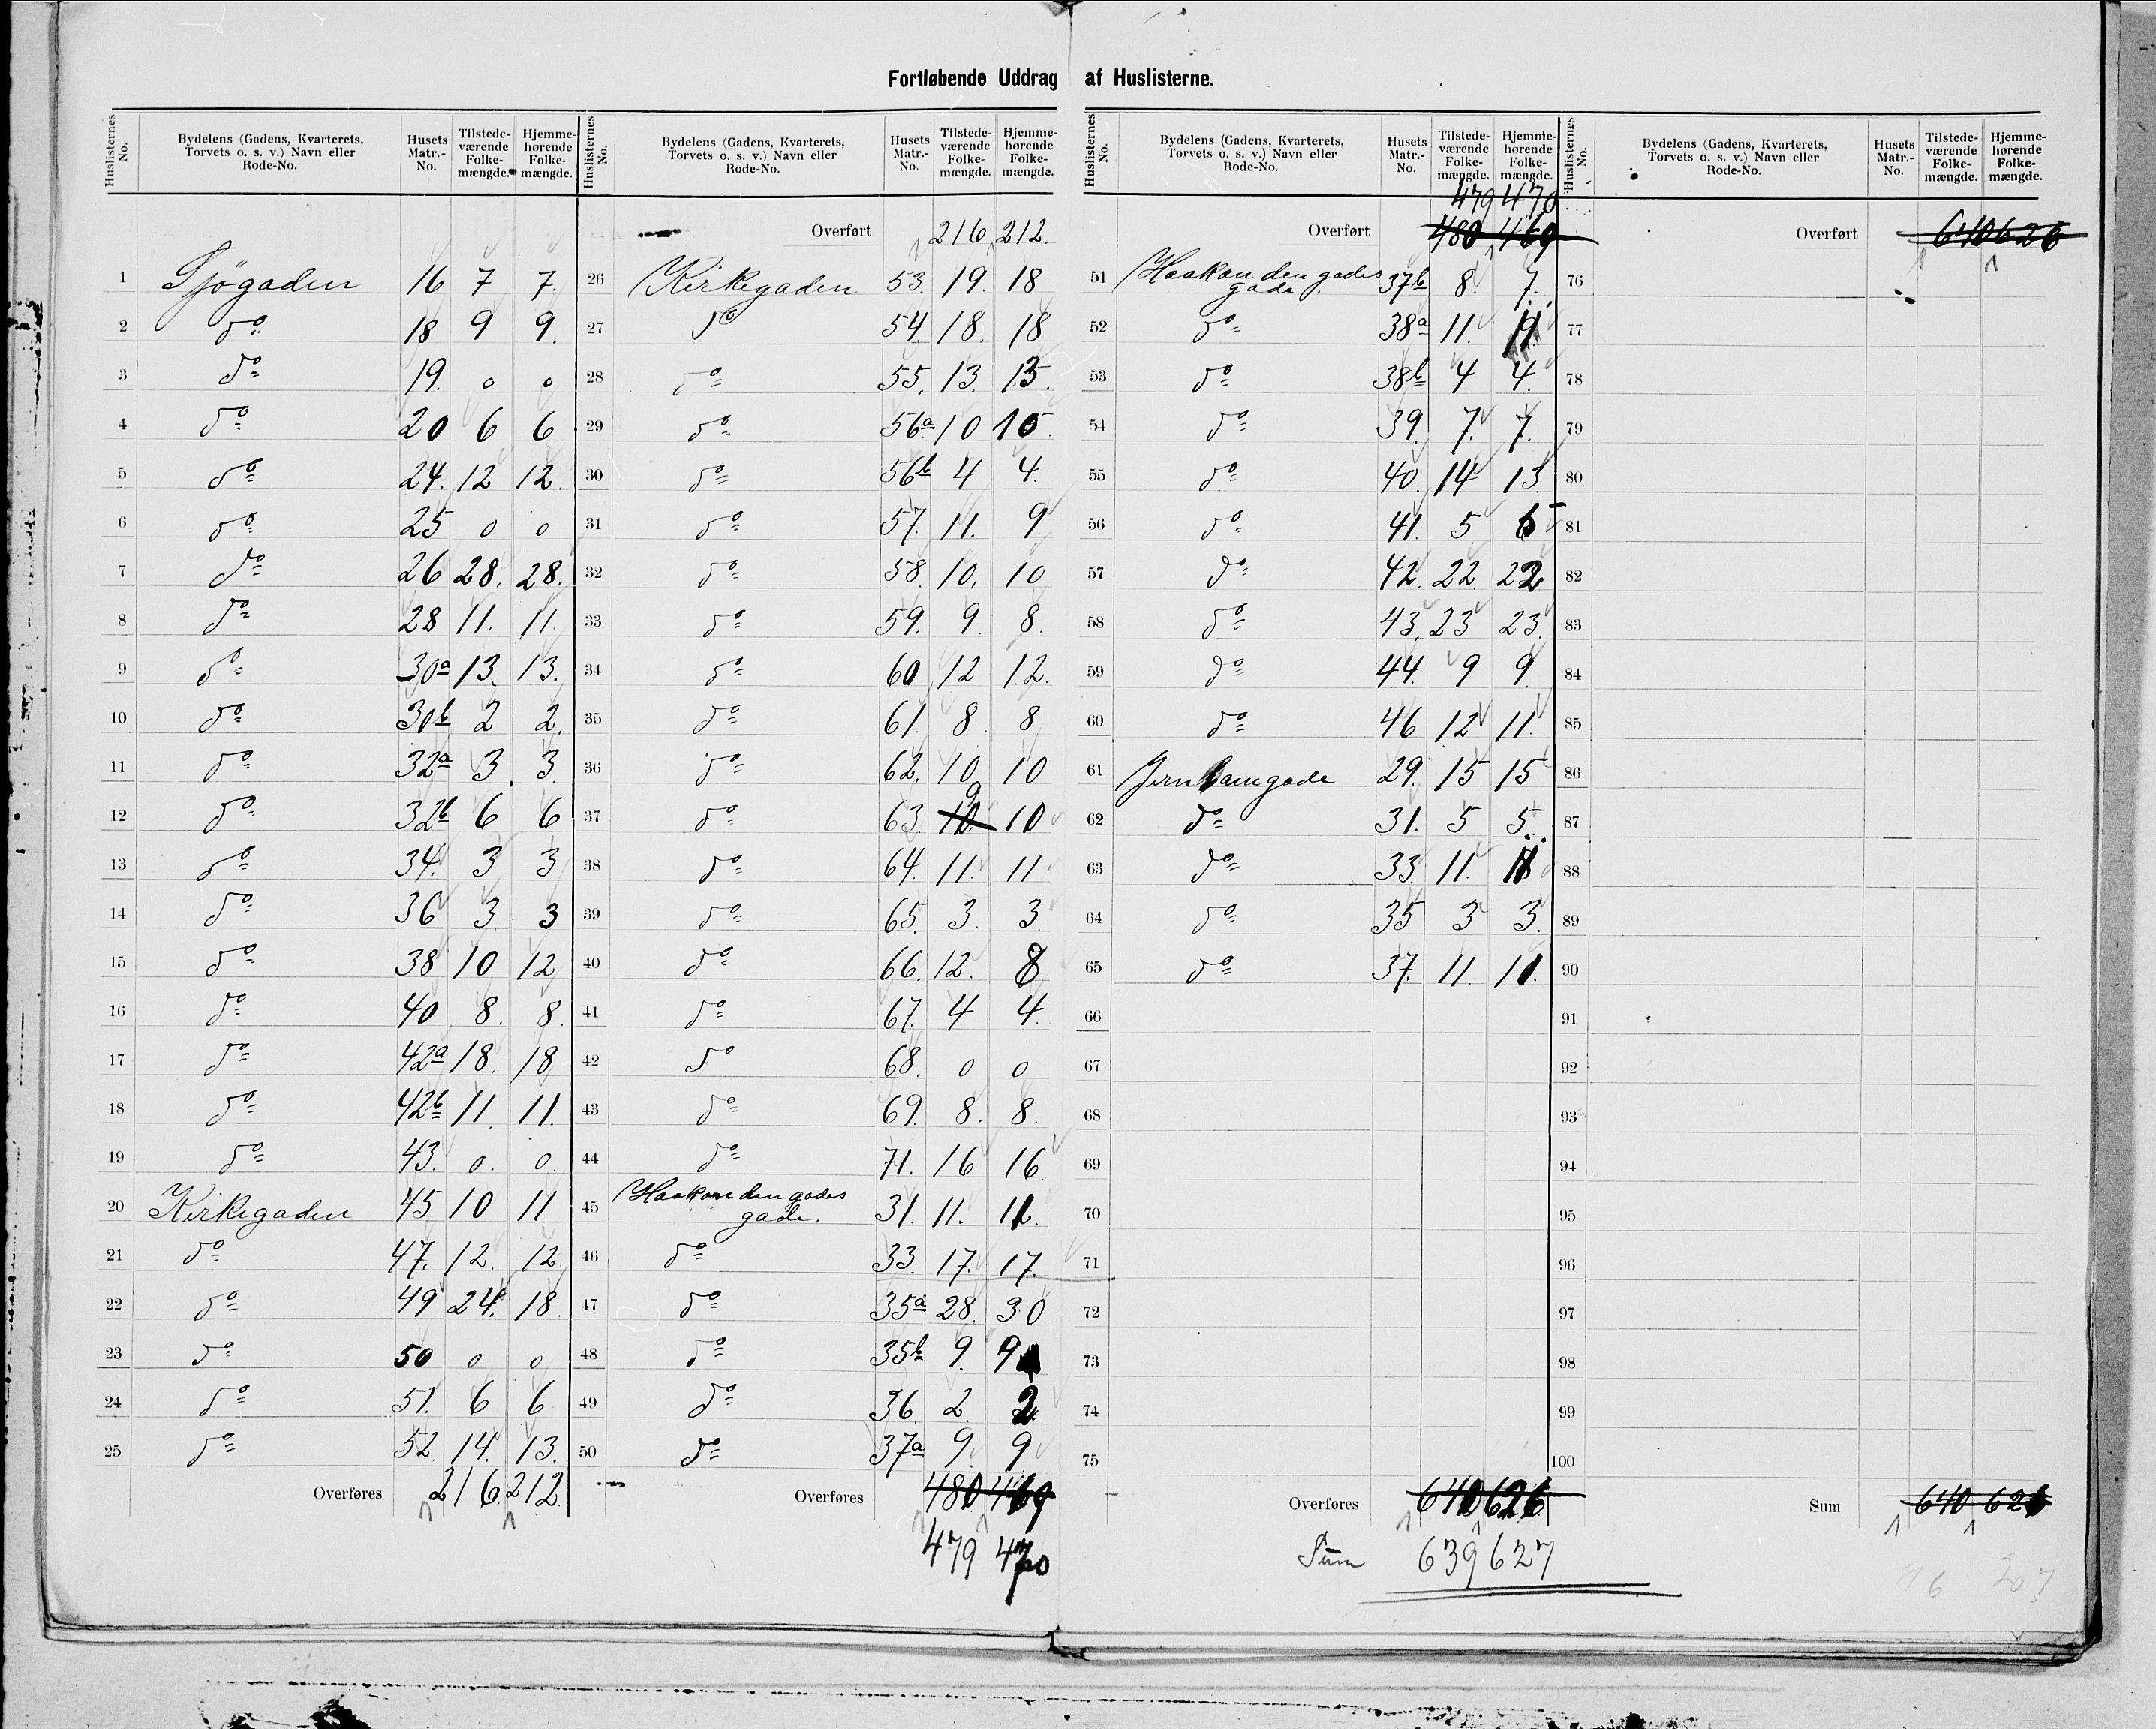 Fortløbende Uddrag af Huslisterne.
Huslisternes No. | Bydelens (Gadens, Kvarterets, Torvets o. s. v.) Navn eller Rode-No. | Husets Matr.-No. | Tilstede-værende Folke-mængde. | Hjemme-hørende Folke-mængde.
1 Sjøgaden 16 7 7.
2 do 18 9 9.
3 do 19. 0 0
4 do 20 6 6
5 do 24. 12 12.
6 do 25 0 0
7 do 26 28. 28.
8 do 28 11. 11.
9 do 30a 13. 13.
10 do 30b 2 2.
11 do 32a 3. 3.
12 do 32b 6 6
13 do 34. 3 3
14 do 36 3 3
15 do 38 10 12
16 do 40 8. 8.
17 do 42a 18. 18
18 do 42b 11 11.
19 do 43. 0. 0.
20 Kirkegaden 45 10 11
21 do 47. 12. 12.
22 do 49 24. 18.
23 do 50 0 0
24 do 51. 6 6
25 do 52. 14. 13.
Overføres 216. 212.
Huslisternes No. | Bydelens (Gadens, Kvarterets, Torvets o. s. v.) Navn eller Rode-No. | Husets Matr.-No. | Tilstede-værende Folke-mængde. | Hjemme-hørende Folke-mængde.
Overført 216 212.
26 Kirkegaden 53. 19. 18
27 do 54. 18. 18
28 do 55. 13. 13.
29 do 56a 10 10
30 do 56b 4 4.
31 do 57. 11. 9.
32 do 58. 10. 10
33 do 59. 9. 8.
34 do 60 12 12.
35 do 61. 8 8
36 do 62. 10 10
37 do 63. 10. 9 10
38 do 64. 11. 11
39 do 65. 3. 3.
40 do 66. 12. 8
41 do 67. 4 4.
42 do 68. 0 0
43 do 69. 8. 8.
44 do 71. 16 16
45 Haakon den godes
gade. 31. 11. 11.
46 do 33. 17. 17.
47 do 35a 28. 30
48 do 35b 9. 9
49 do 36. 2. 2.
50 do 37a 9. 9.
Overføres 480 469
479 470
Huslisternes No. | Bydelens (Gadens, Kvarterets, Torvets o. s. v.) Navn eller Rode-No. | Husets Matr.-No. | Tilstede-værende Folke-mængde. | Hjemme-hørende Folke-mængde.
479 470
Overført 480 469
51 Haakon den godes
gade. 37b 8. 7.
52 do 38a 11. 11
53 do 38b 4 4.
54 do 39. 7. 7.
55 do 40. 14 13
56 do 41. 5
57 do 42. 22. 22
58 do 43. 23 23.
59 do 44. 9 9
60 do 46 12 11.
61 Jernbanegade 29. 15 15
62 do 31. 5 5.
63 do 33. 11. 11
64 do 35 3 3.
65 do 37. 11. 11.
66
67
68
69
70
71
72
73
74
75
Overføres 640 626
Sum 639 627
Huslisternes No. | Bydelens (Gadens, Kvarterets, Torvets o. s. v.) Navn eller Rode-No. | Husets Matr.-No. | Tilstede-værende Folke-mængde. | Hjemme-hørende Folke-mængde.
Overført 640 626
76
77
78
79
80
81
82
83
84
85
86
87
88
89
90
91
92
93
94
95
96
97
98
99
100
Sum 640 626